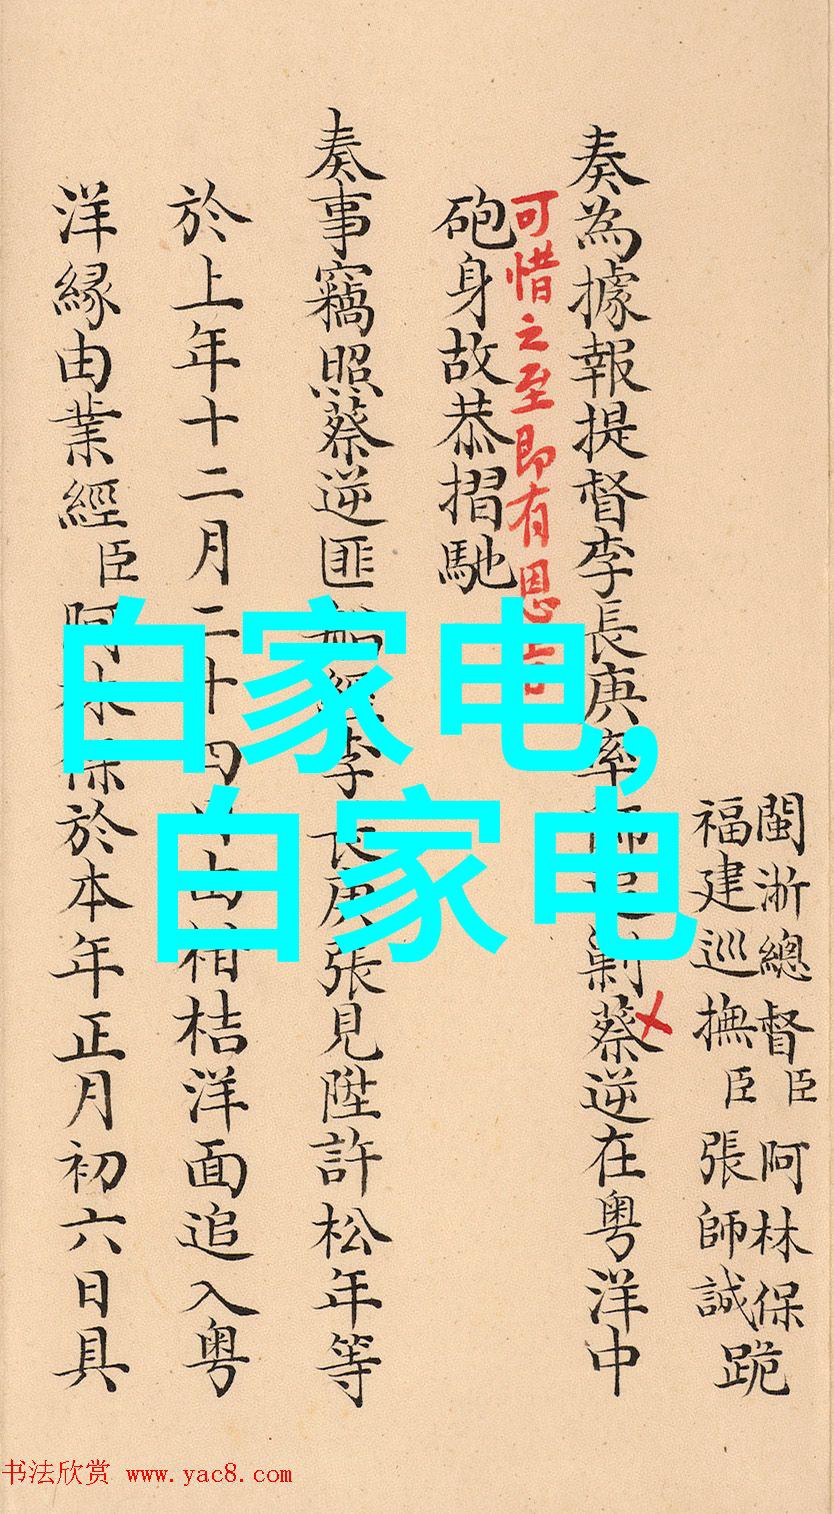 閩浙總督臣阿林保
福建巡撫臣張師誠跪
奏為據報提督李長庚率師追剿蔡逆在粵洋中
可惜之至即有恩旨
砲身故恭摺馳
奏事竊照蔡逆匪船經李長庚張見陞許松年等
於上年十二月二十四日由柑桔洋面追入粵
洋緣由業經臣阿林保於本年正月初六日具
白家电,
白家电
书法欣赏 www.yac8.com